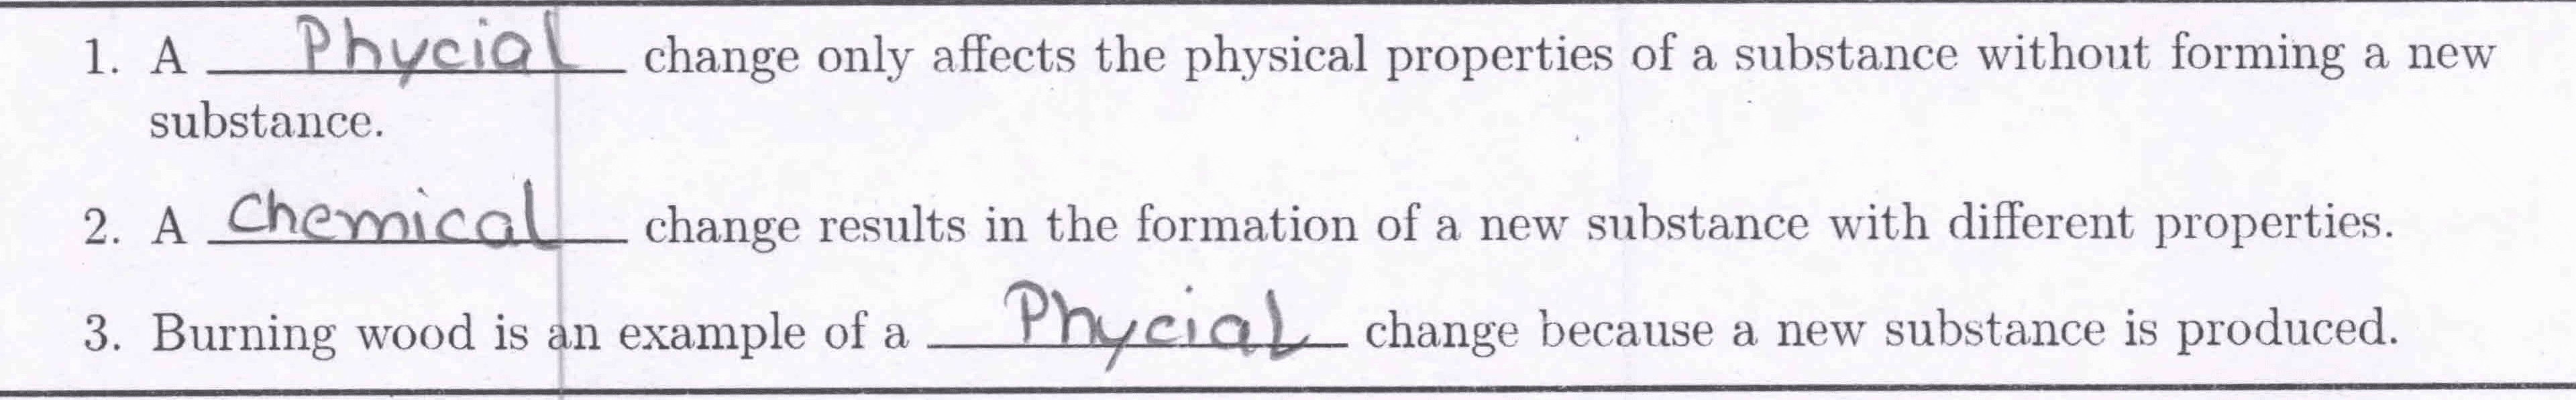 1. A Phycial change only affects the physical properties of a substance without forming a new
substance.
2. A Chemical change results in the formation of a new substance with different properties.
3. Burning wood is an example of a Phycial change because a new substance is produced.